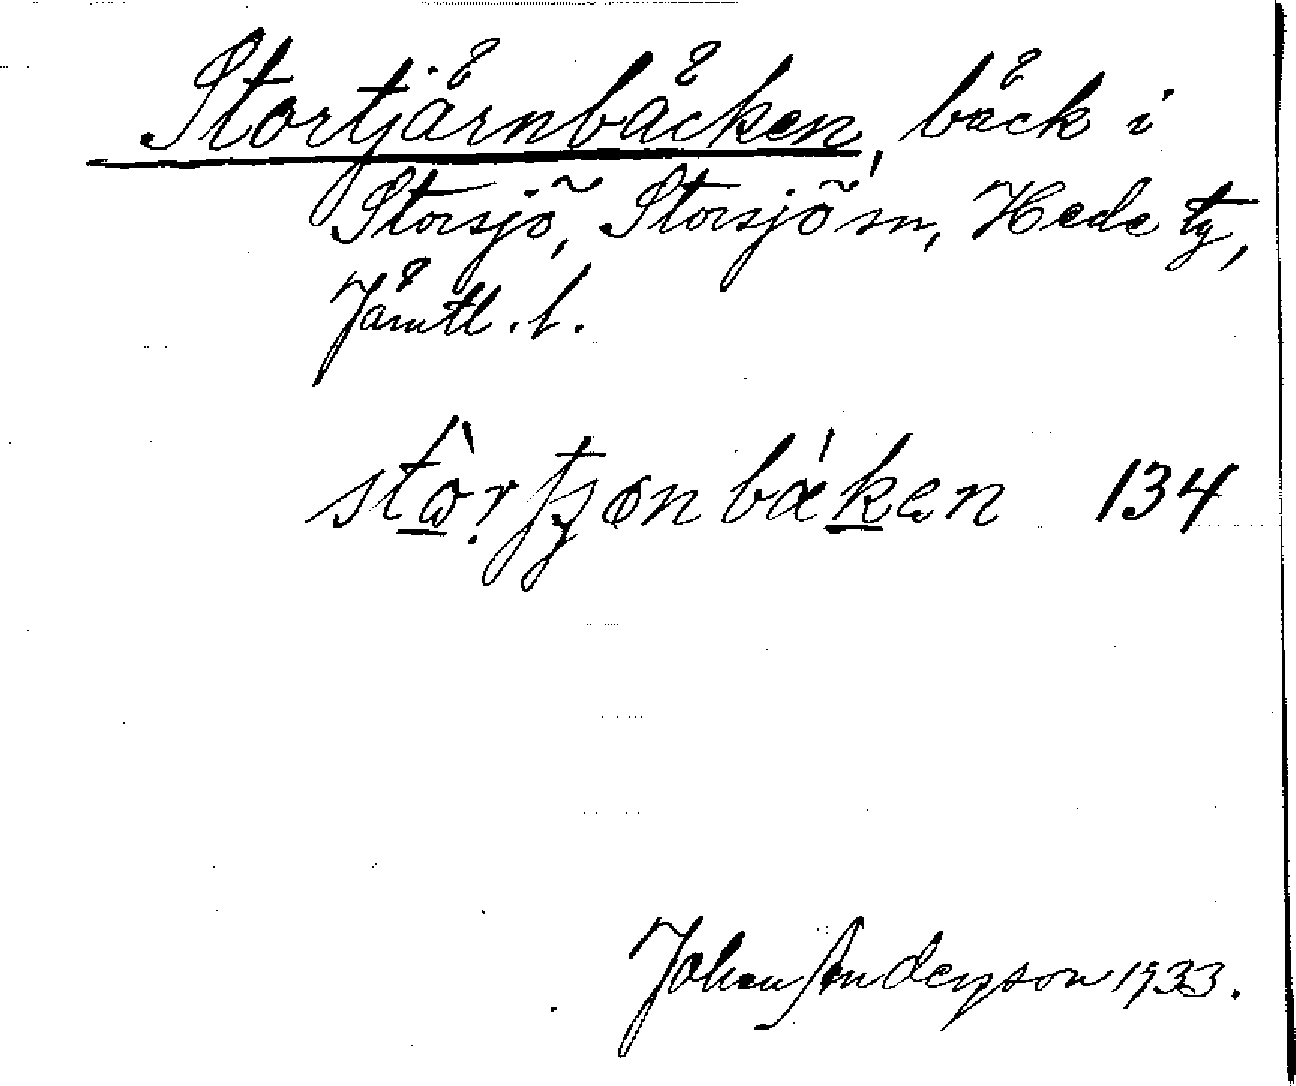 Stortjärnbäcken, bäck i
Storsjö, Storsjö sn, Hede tg,
Jämtl. l.
stòrtjønbækən 134
Johan Anderson 1933.